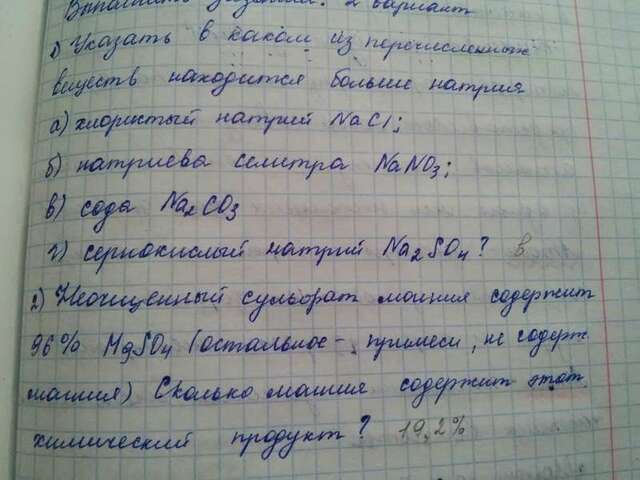 Выполнить задания. 2 вариант
1) Указать в каком из перечисленных
веществ находится больше натрия
а) хлористый натрий NaCl;
б) натриева селитра NaNO3;
в) сода Na2CO3
г) сернокислый натрий Na2SO4? в
2) Неочищенный сульфат магния содержит
96% MgSO4 (остальное - примеси, не содерж.
магния) Сколько магния содержит этот
химический продукт? 19,2%